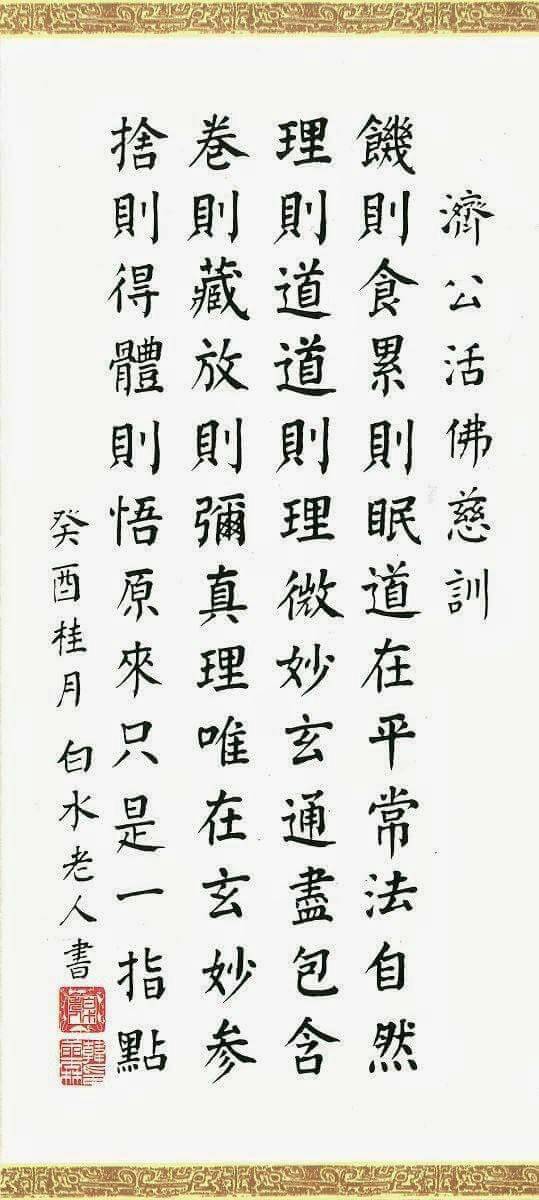 濟公活佛慈訓
饑則食累則眠道在平常法自然
理則道道則理微妙玄通盡包含
卷則藏放則彌真理唯在玄妙參
捨則得體則悟原來只是一指點
癸酉桂月 白水老人書